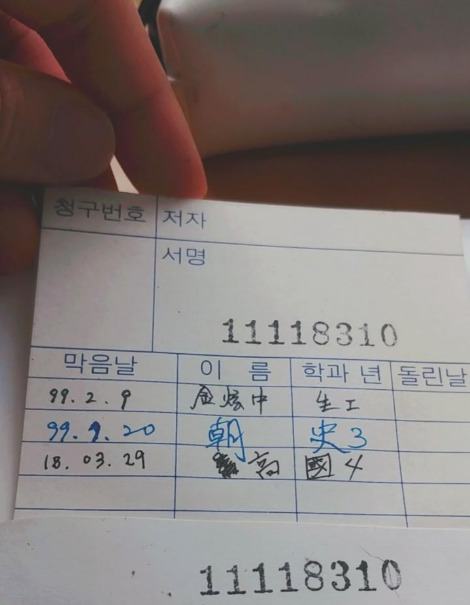 청구번호 저자
서명
11118310
막음날 이 름 학과 년 돌린날
99.2.9 金炫中 生工
99.9.20 朝 史3
18.03.29 高 國4
11118310